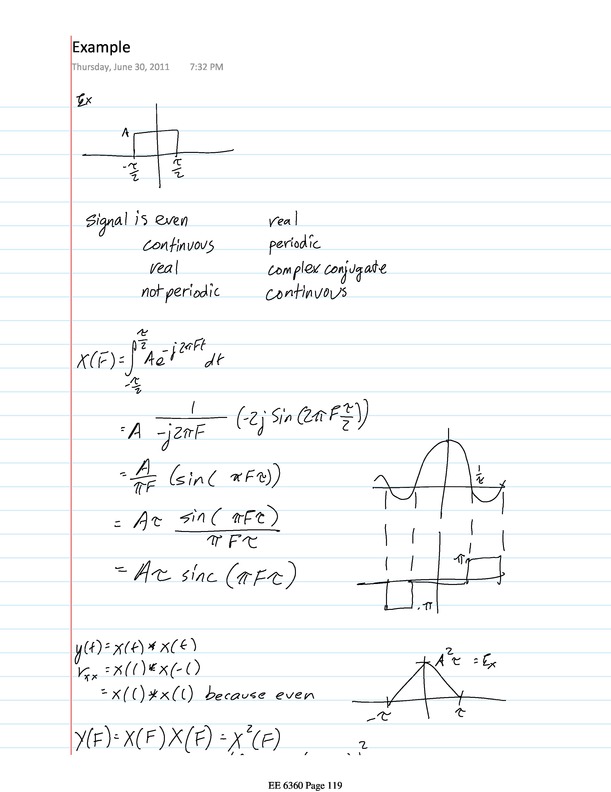 Example
Thursday, June 30, 2011 7:32 PM
Ex
A
-τ/2 τ/2
Signal is even real
continuous periodic
real complex conjugate
not periodic continuous
X(F) = ∫_{-τ/2}^{τ/2} A e^{-j2πFt} dt
= A 1/(-j2πF) (-2j sin(2πF τ/2))
= A/(πF) (sin( πFτ))
1/τ
= Aτ sin( πFτ)/(πFτ)
π
= Aτ sinc(πFτ)
-π
y(t) = x(t) * x(t)
r_xx = x(l) * x(-l)
A²τ = Ex
= x(l) * x(l) because even
-τ τ
Y(F) = X(F) X(F) = X²(F)
2
EE 6360 Page 119